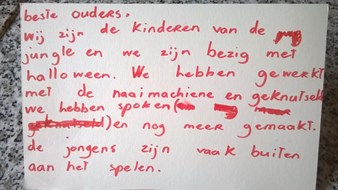 beste ouders,
Wij zijn de kinderen van de
jungle en we zijn bezig met
halloween. We hebben gewerkt
met de naaimachiene en geknutseld
we hebben spoken(
)en nog meer gemaakt.
de jongens zijn vaak buiten
aan het spelen.